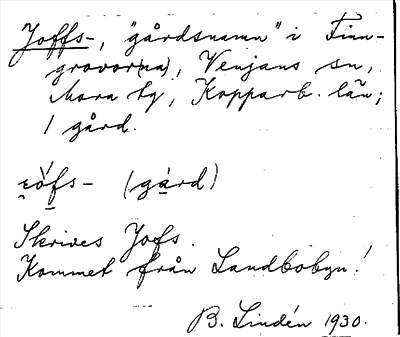 Joffs-, "gårdsnamn" i Finn-
grovor(na), Venjans sn,
Mora tg, Kopparb. län;
1 gård.
(gård)
Skrives Jofs.
Kommet från Landbobyn!
B. Lindén 1930.